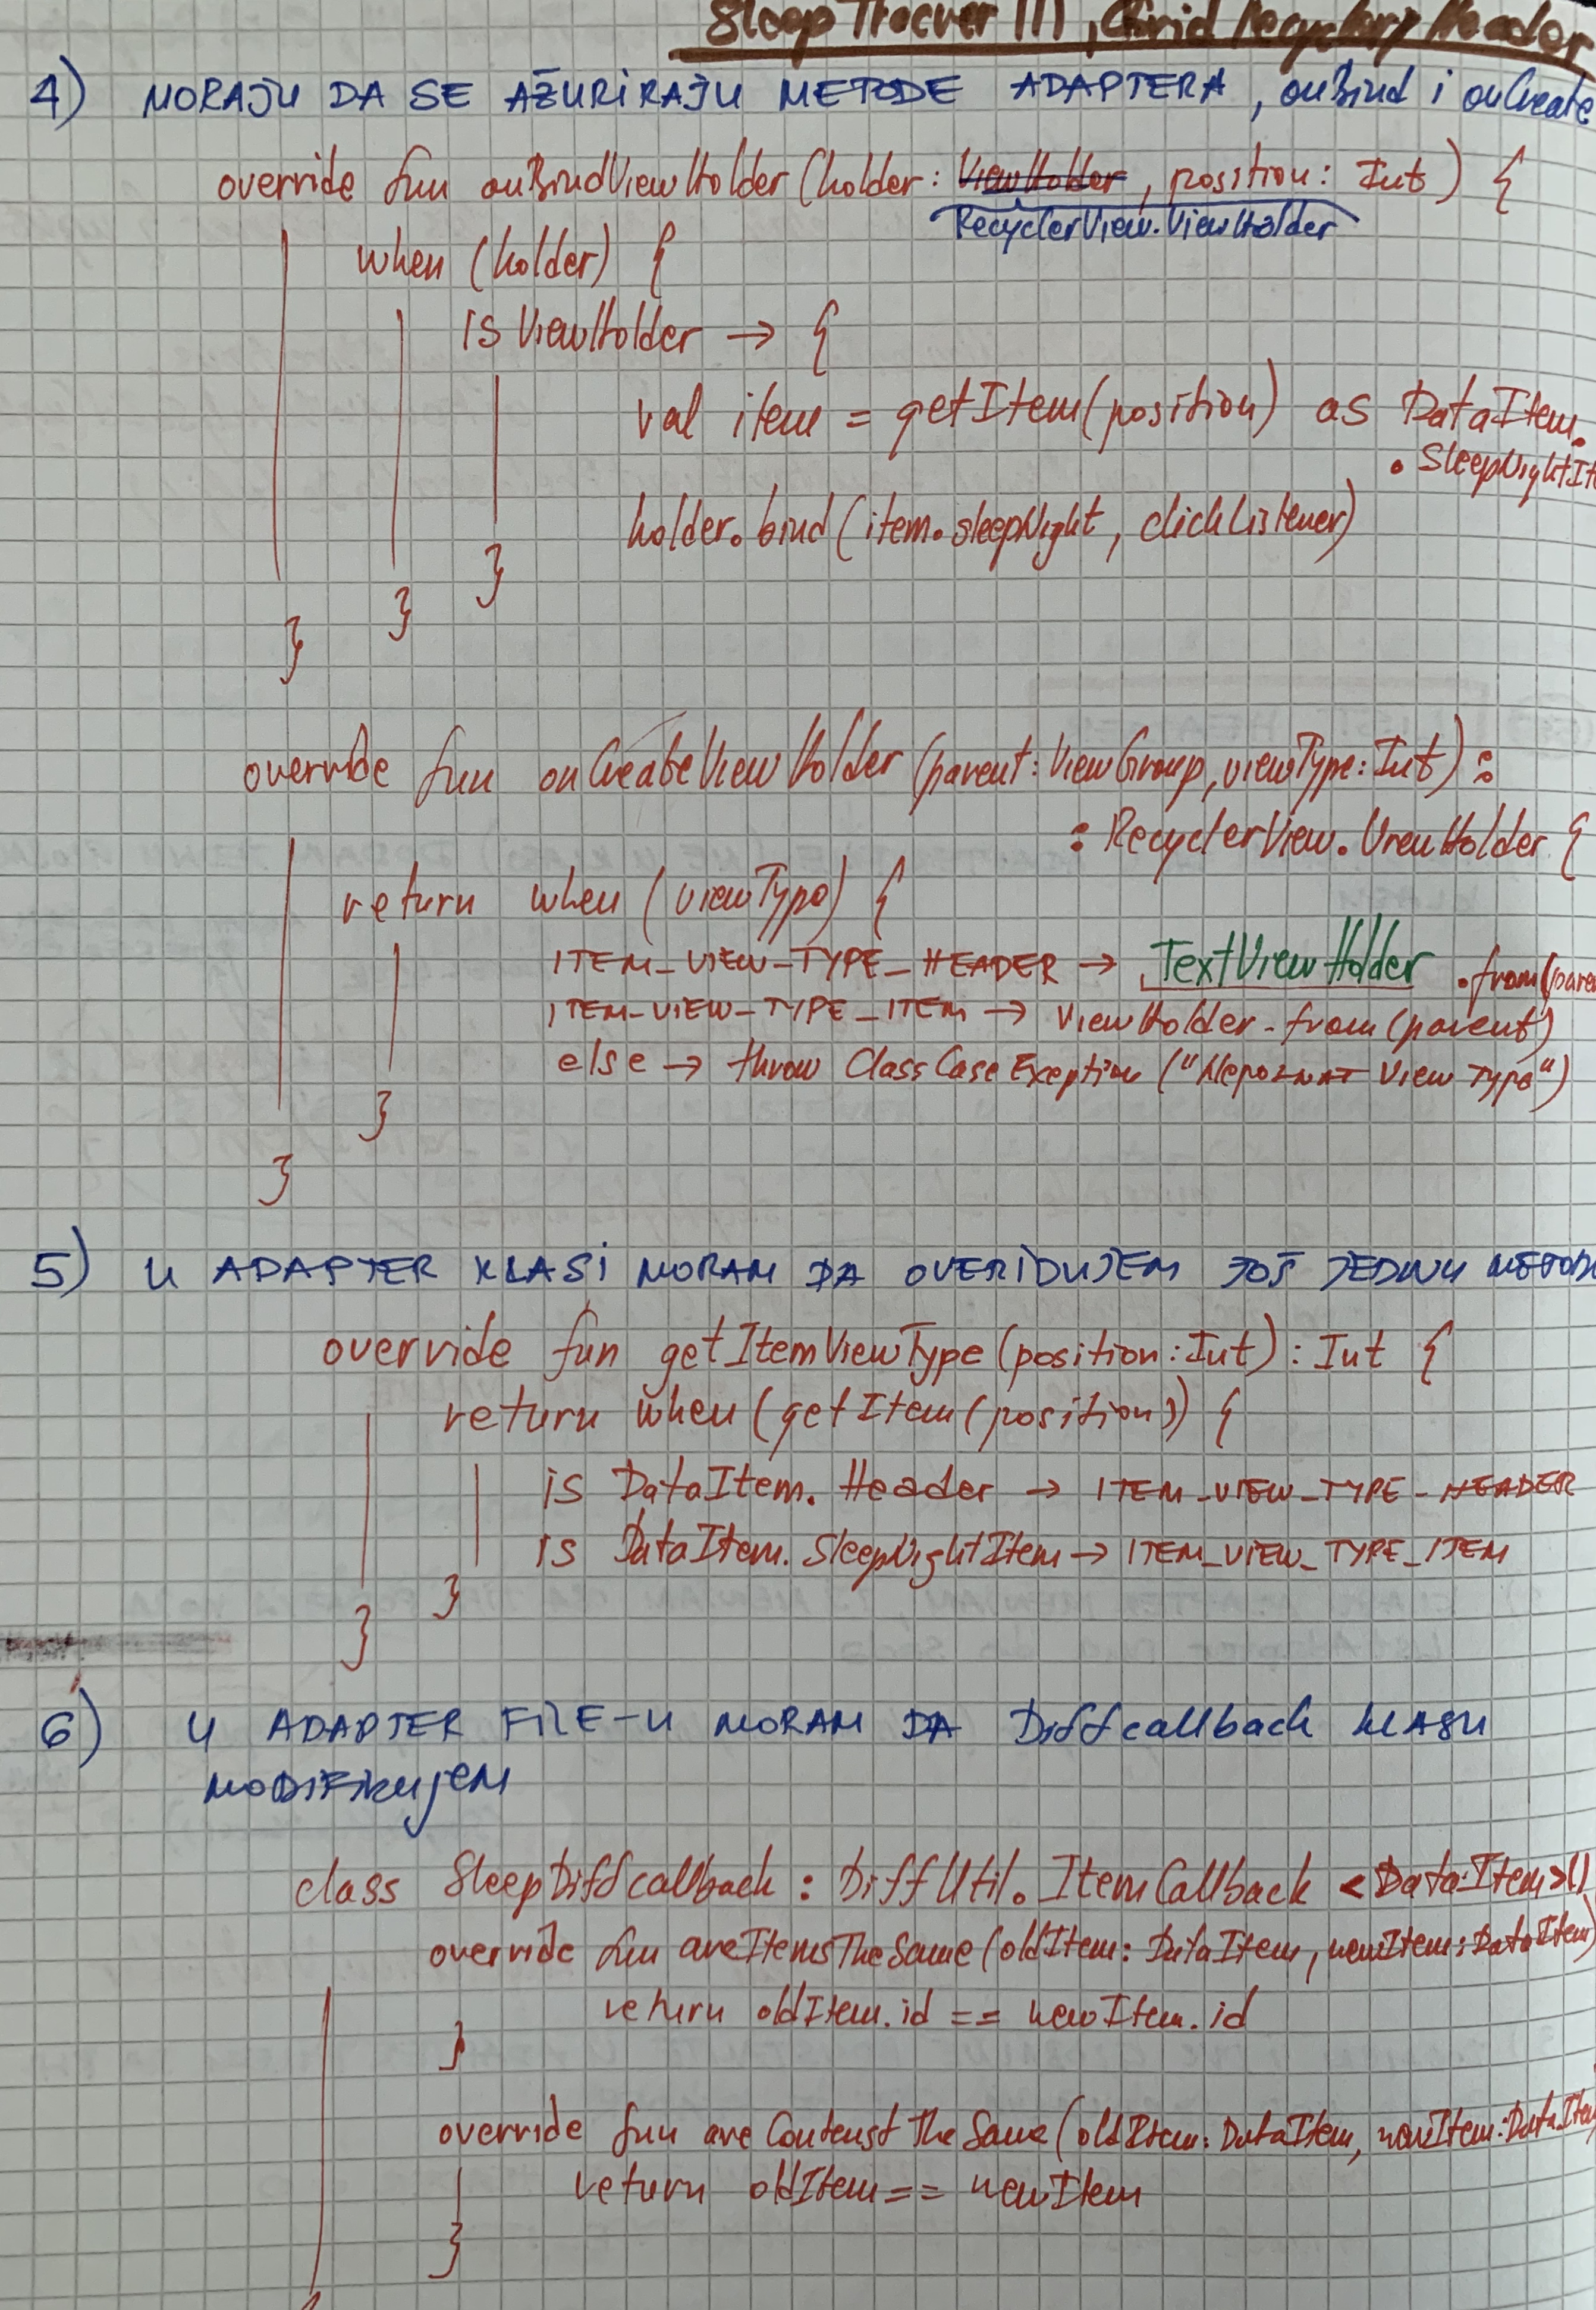 Sleep Tracker III, Grid Recycler, Header
4) MORAJU DA SE AŽURIRAJU METODE ADAPTERA, onBind i onCreate
override fun onBindViewHolder (holder: ViewHolder, position: Int) {
RecyclerView.ViewHolder
when (holder) {
is ViewHolder → {
val item = getItem(position) as DataItem.
. SleepNightIt
holder.bind (item.sleepNight, clickListener)
}
}
}
override fun onCreateViewHolder (parent: ViewGroup, viewType: Int) :
: RecyclerView.ViewHolder {
return when (viewType) {
ITEM_VIEW_TYPE_HEADER → TextViewHolder .from(pare
ITEM_VIEW_TYPE_ITEM → ViewHolder.from(parent)
else → throw ClassCaseExeption ("Nepoznat View Type")
}
}
5) U ADAPTER KLASI MORAM DA OVERIDUJEM JOŠ JEDNU METOD
override fun getItemViewType (position: Int) : Int {
return when (getItem (position)) {
is DataItem. Header → ITEM_VIEW_TYPE_HEADER
is DataItem. SleepNightItem → ITEM_VIEW_TYPE_ITEM
}
}
6) U ADAPTER FILE-U MORAM DA Diffcallback KLASU
MODIFIKUJEM
class SleepDiffcallback : DiffUtil. ItemCallback <DataItem>()
override fun areItemsTheSame (oldItem: DataItem, newItem: DataItem)
return oldItem.id == newItem.id
}
override fun areContenstTheSame (oldItem: DataItem, newItem: DataItem
return oldItem == newItem
}